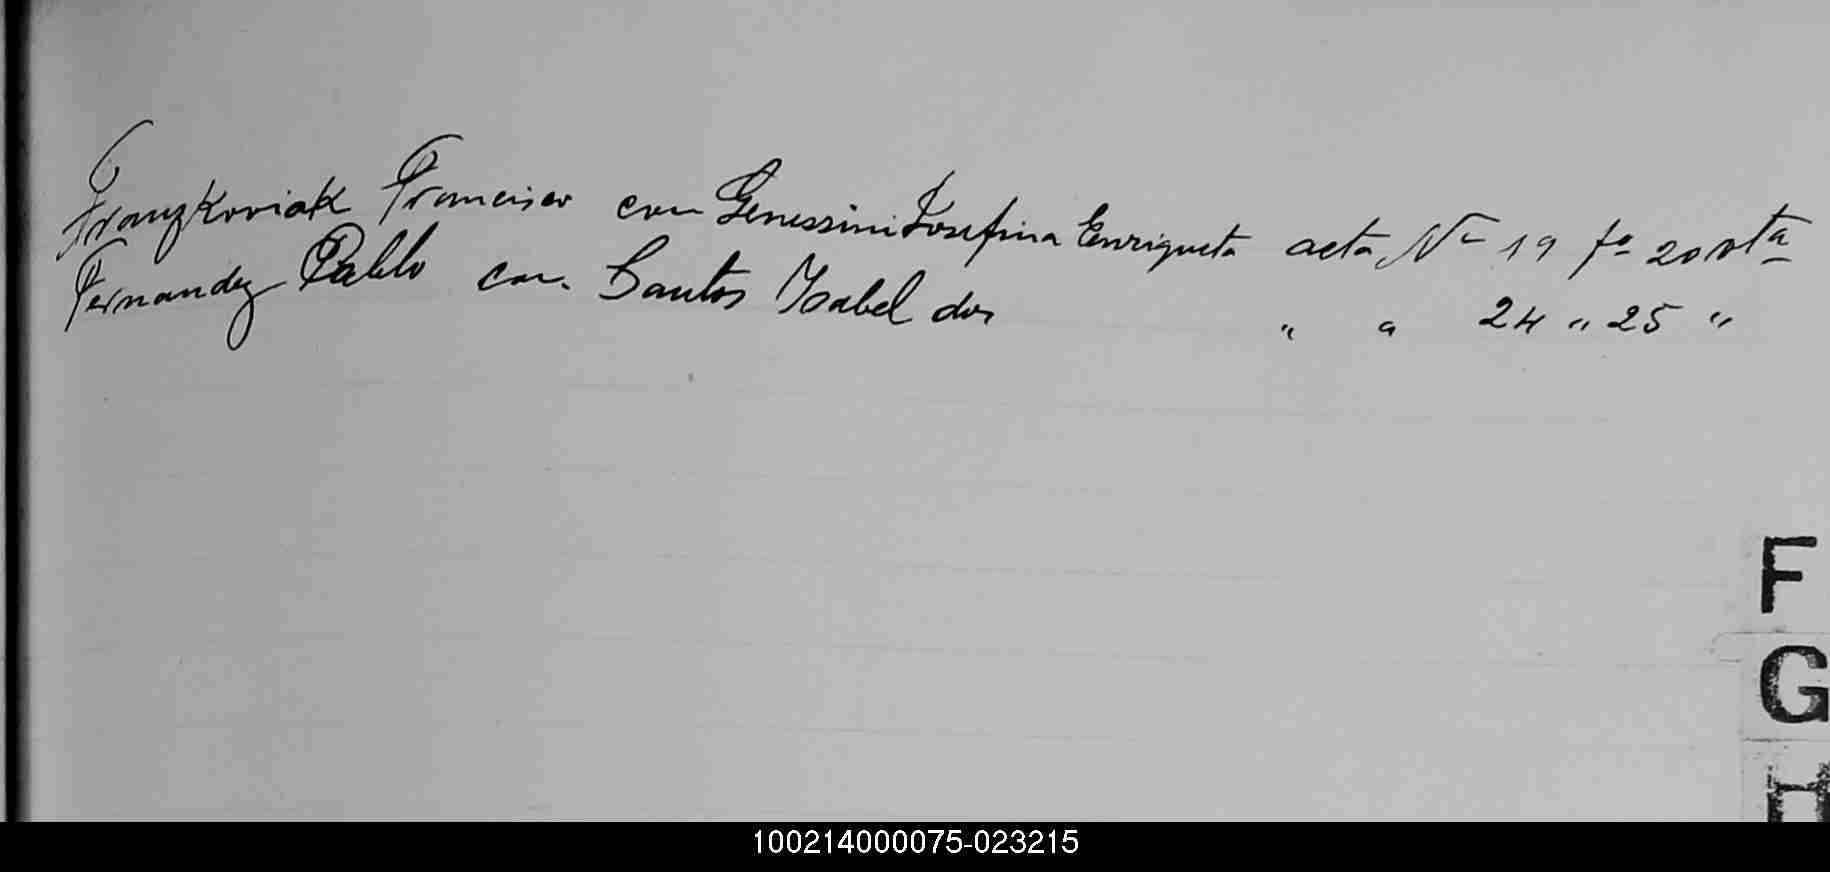 Franzkoviak Francisco con Genessini Josefina Enriqueta acta Nº 19 fº 20 vta
Fernandez Pablo con Santos Isabel dos " " 24 " 25 "
F
G
H
100214000075-023215